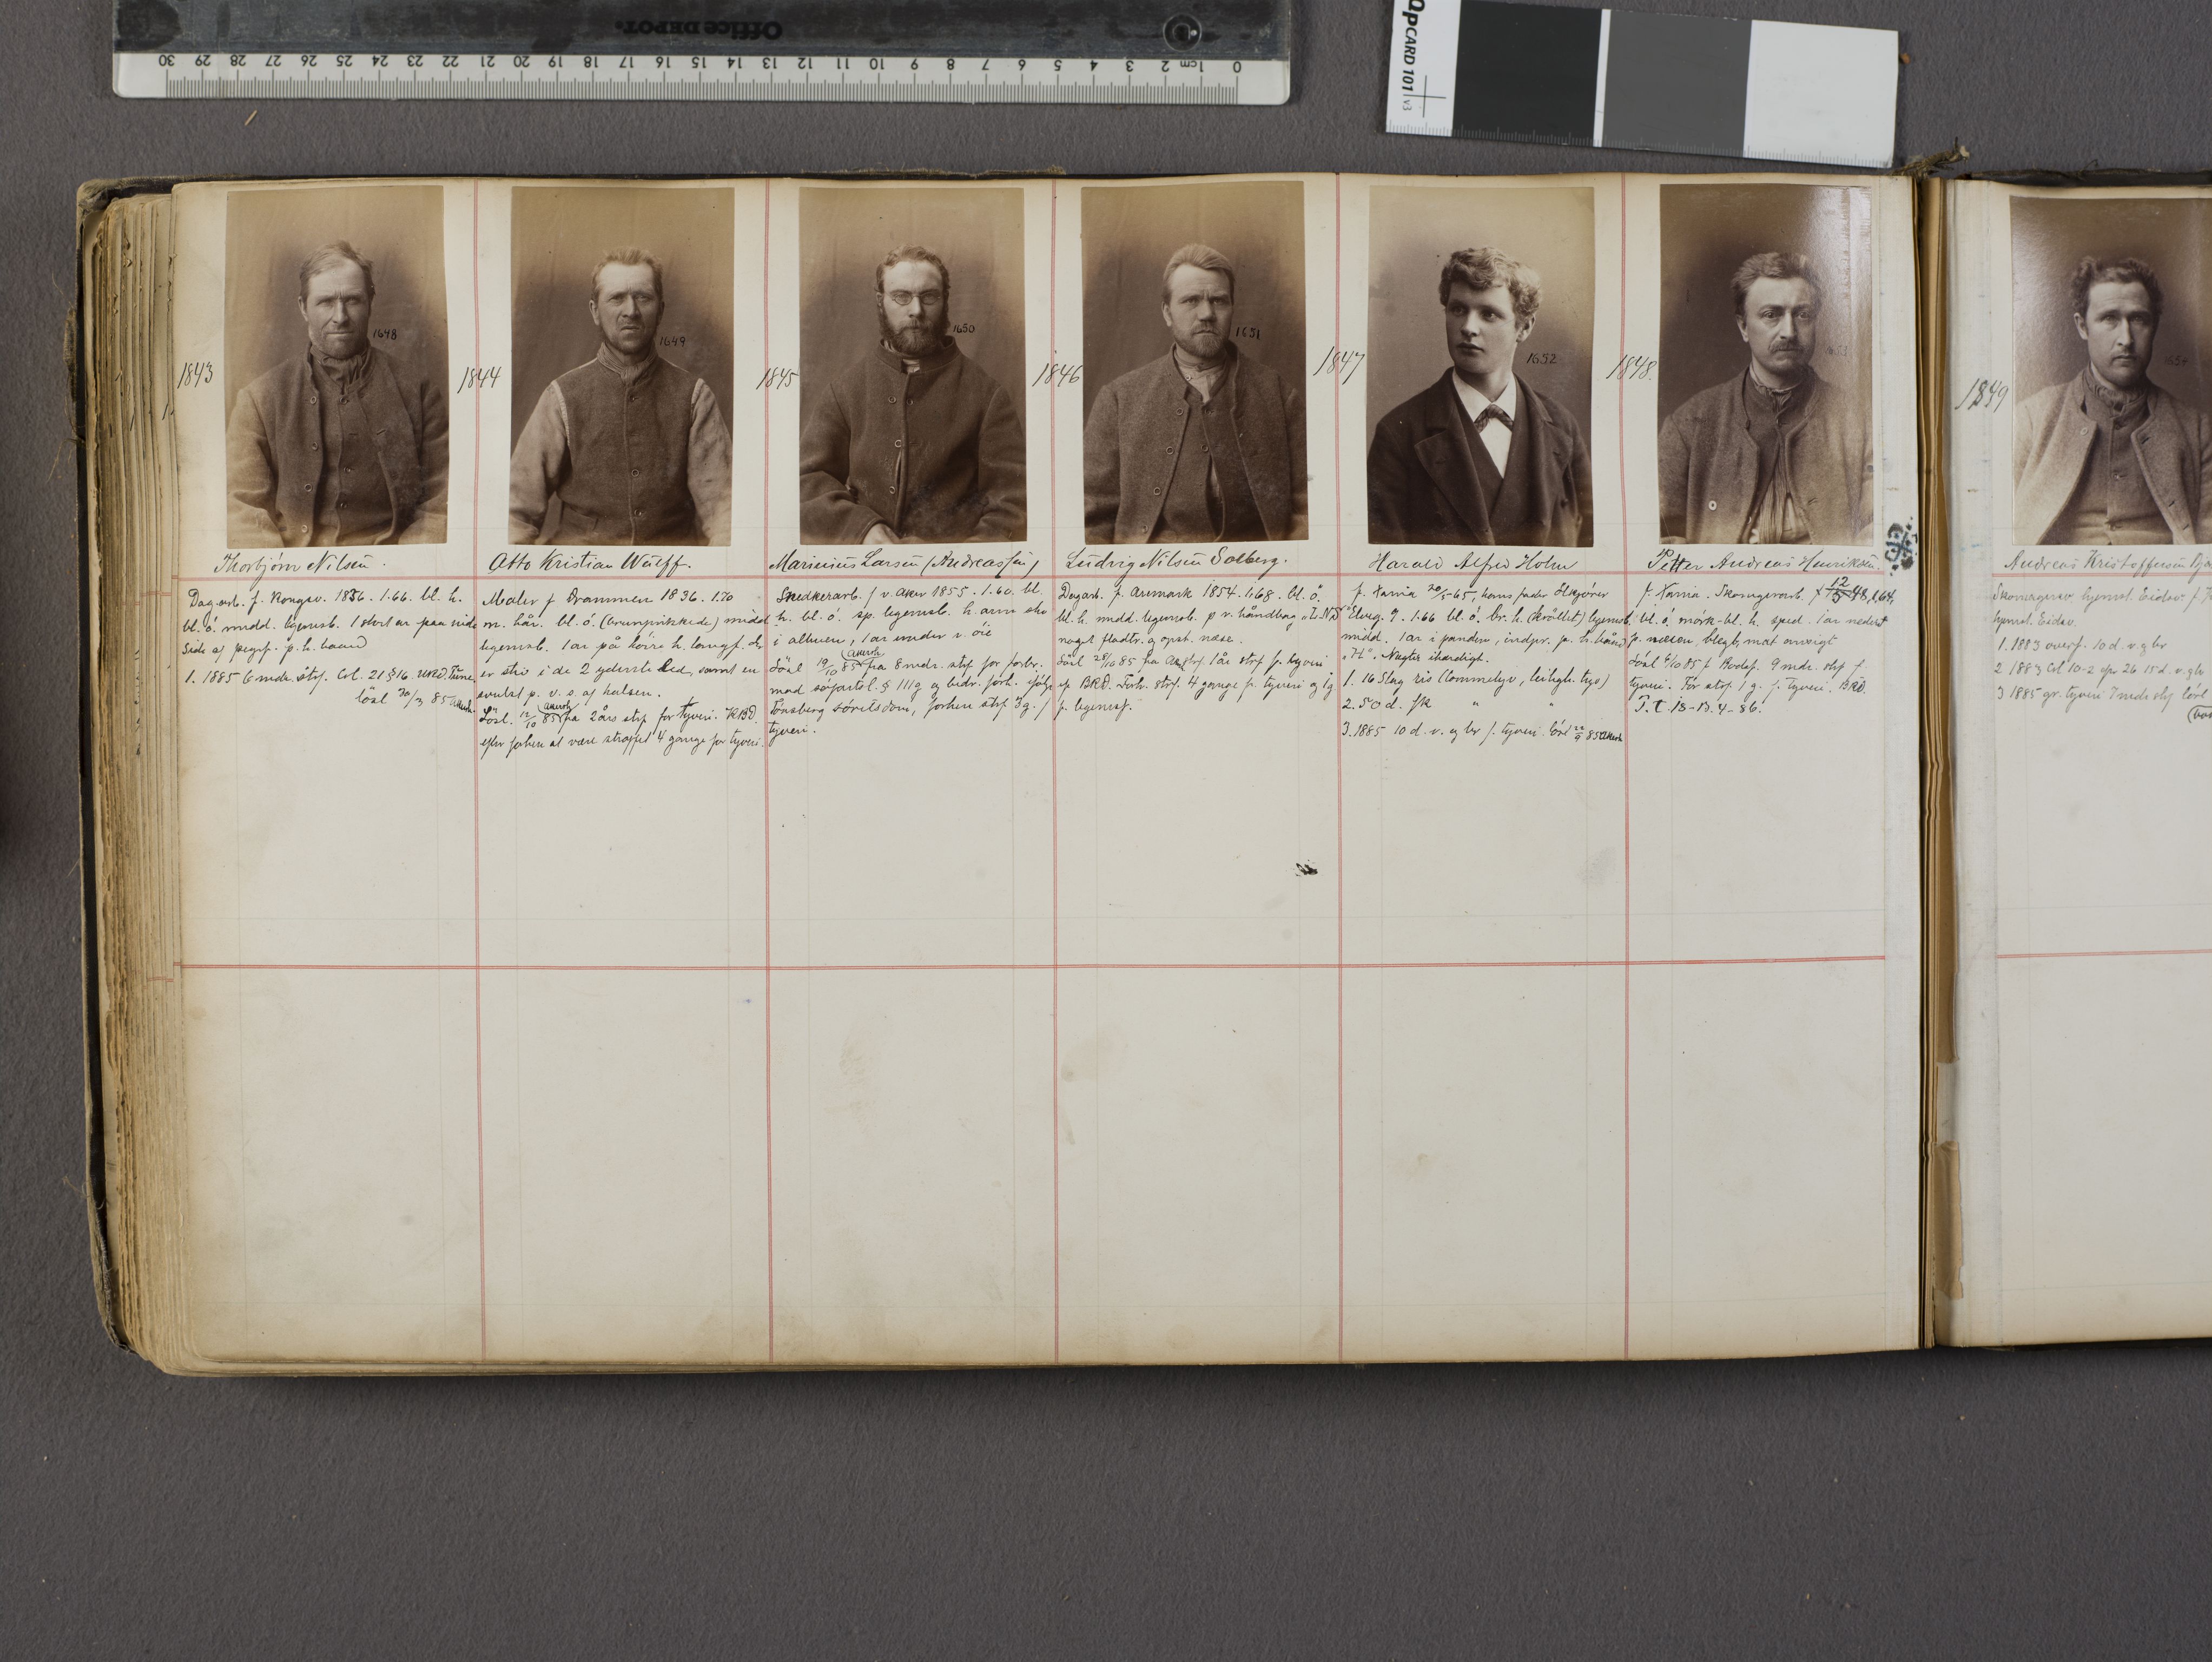 Office DEPOT.
0 1cm 2 3 4 5 6 7 8 9 10 11 12 13 14 15 16 17 18 19 20 21 22 23 24 25 26 27 28 29 30
QPCARD 101 v3
1843
1648
Thorbjörn Nilsen.
Dagarb. f. Kongsv. 1836. 1.66. bl. h.
bl. ö. midd. legemsb. 1 stort ar paa
side af pegef. p. h. haand
1. 1885 6 mdr. stf. Crl. 21 § 16
lösl 30/3 85
1844
1649
Otto Kristian Wulff.
Maler f Drammen 1836. 1.70
m. hår. bl. ö. (brunprikkede) midd
legemsb. 1 ar på höire h. langf. der
er stiv i de 2 yderste Led, samt en
svulst p. v. s. af halsen.
Lösl. 12/10 85 fra 2 års stf for tyveri.
efter forhen at være straffet 4 gange for tyveri.
1845
1650
Marinius Larsen (Andreassen)
Snedkerarb. f v. Aker 1855. 1.60. bl.
h. bl. ö. sp. legemsb. h. arm
i albuen, 1 ar under v. öie
Lösl 19/10 85 fra 8 mdr. stf for forbr.
mod söfartsl. § 111 g og bedr. forh. ifölge
Tönsberg sörelsdom, forhen stf 3 g. f
tyveri.
1846
1651
Ludvig Nilsen Solberg.
Dagarb. f. Aremark 1854. 1.68. bl. ö.
bl. h. midd. legemsb. p v. håndbag
noget fladtr. a opst. næse.
Lösl 28/10 85 fra 1 års stf f. tyveri
BRD. Forh. strf. 4 gange f. tyveri og 1 g.
f. legemsf.
1847
1652
Harald Alfred Holm
f. Xania 20/5-65, hans fader Ölkjörer
Elveg. 9. 1.66 bl. ö. br. h. (kröllet) legemsb.
midd. 1 ar i panden, indpr. p. h. hånd
"H". Nægter ihærdigt.
1. 16 Slag ris (Lommetyv, leiligh. tyv)
2. 50 d. fk " "
3. 1885 10 d. v. og br f. tyveri. lösl 22/9 85
1848.
1653
Petter Andreas Henriksen.
f. Xania. Skomagerarb. f 12/5 48, 1.64,
bl. ö. mörk-bl. h. sped. 1 ar nederst
p. næsen, blegt, mat ansigt
Lösl 6/10 85 f Bodsf. 9 mdr. stf f.
tyveri. För stf 1 g. f. Tyveri. BRD.
T. t. 13-13. 4-86.
1849
1654
Andreas Kristoffersen
Skomagersv. hjemst. Eidsv.
hjemst. Eidsv.
1. 1883 overf. 10 d. v. og br
2 1883 Crl 10-2 26 15 d. v. og br
3 1885 gr. tyveri 7 mdr stf lösl